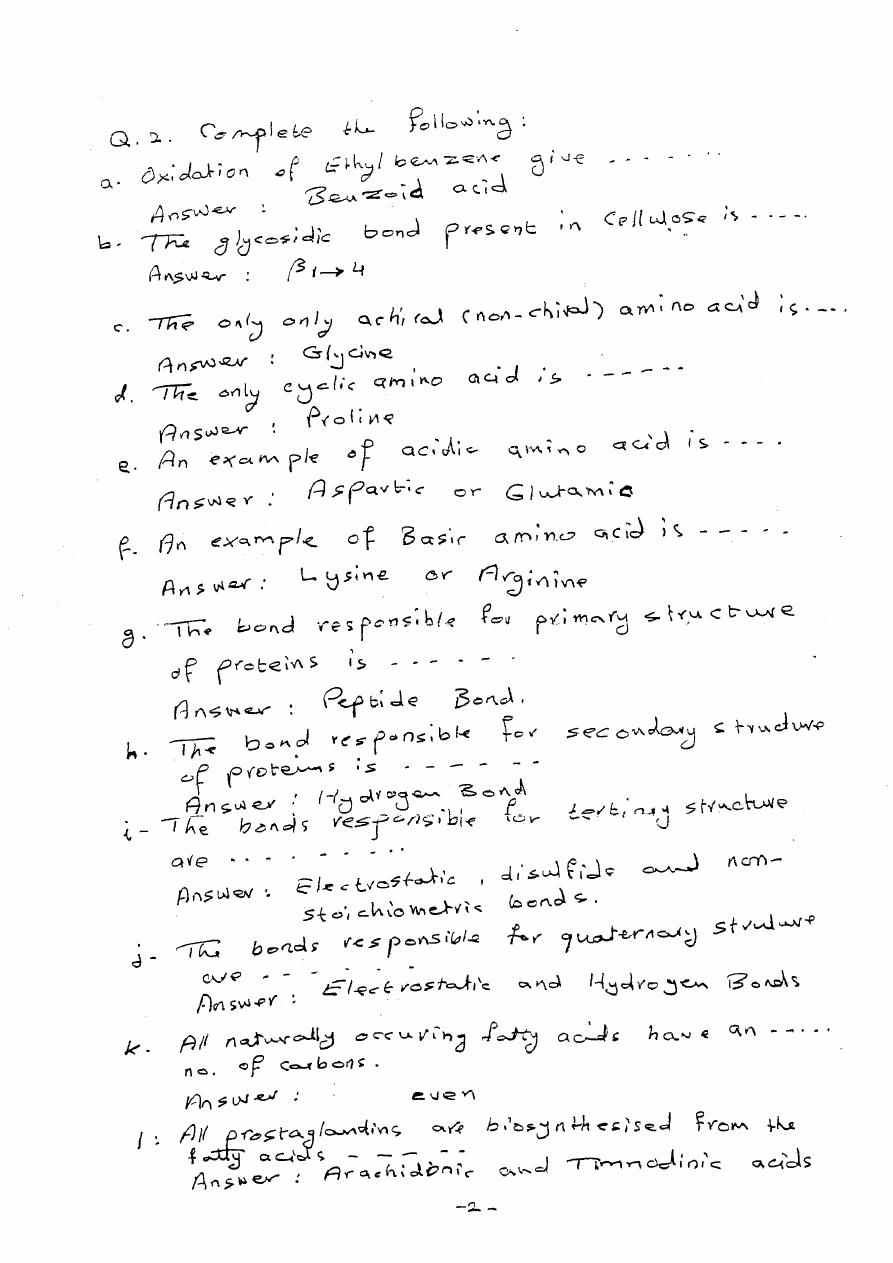 Q.2. Complete the following:
a. Oxidation of Ethylbenzene give - - - - - - - -
Answer : Benzoid acid
b. The glycosidic bond present in Cellulose is - - - - -
Answer : β 1→4
c. The only only achiral (non-chiral) amino acid is - - - -
Answer : Glycine
d. The only cyclic amino acid is - - - - - -
Answer : Proline
e. An example of acidic amino acid is - - - -
Answer : Aspartic or Glutamic
f. An example of Basic amino acid is - - - - -
Answer : Lysine or Arginine
g. The bond responsible for primary structure
of proteins is - - - - - -
Answer : Peptide Bond.
h. The bond responsible for secondary structure
of proteins is - - - - - -
Answer : Hydrogen Bond
i - The bonds responsible for tertiary structure
are - - - - - - - - -
Answer : Electrostatic, disulfide and non-
stoichiometric bonds.
j - The bonds responsible for quaternary struture
are - - - - - -
Answer : Electrostatic and Hydrogen Bonds
k. All naturally occuring fatty acids have an - - - - -
no. of carbons.
Answer : even
l : All prostaglandins are biosynthesised from the
fatty acids - - - - -
Answer : Arachidonic and Timnodinic acids
-2-